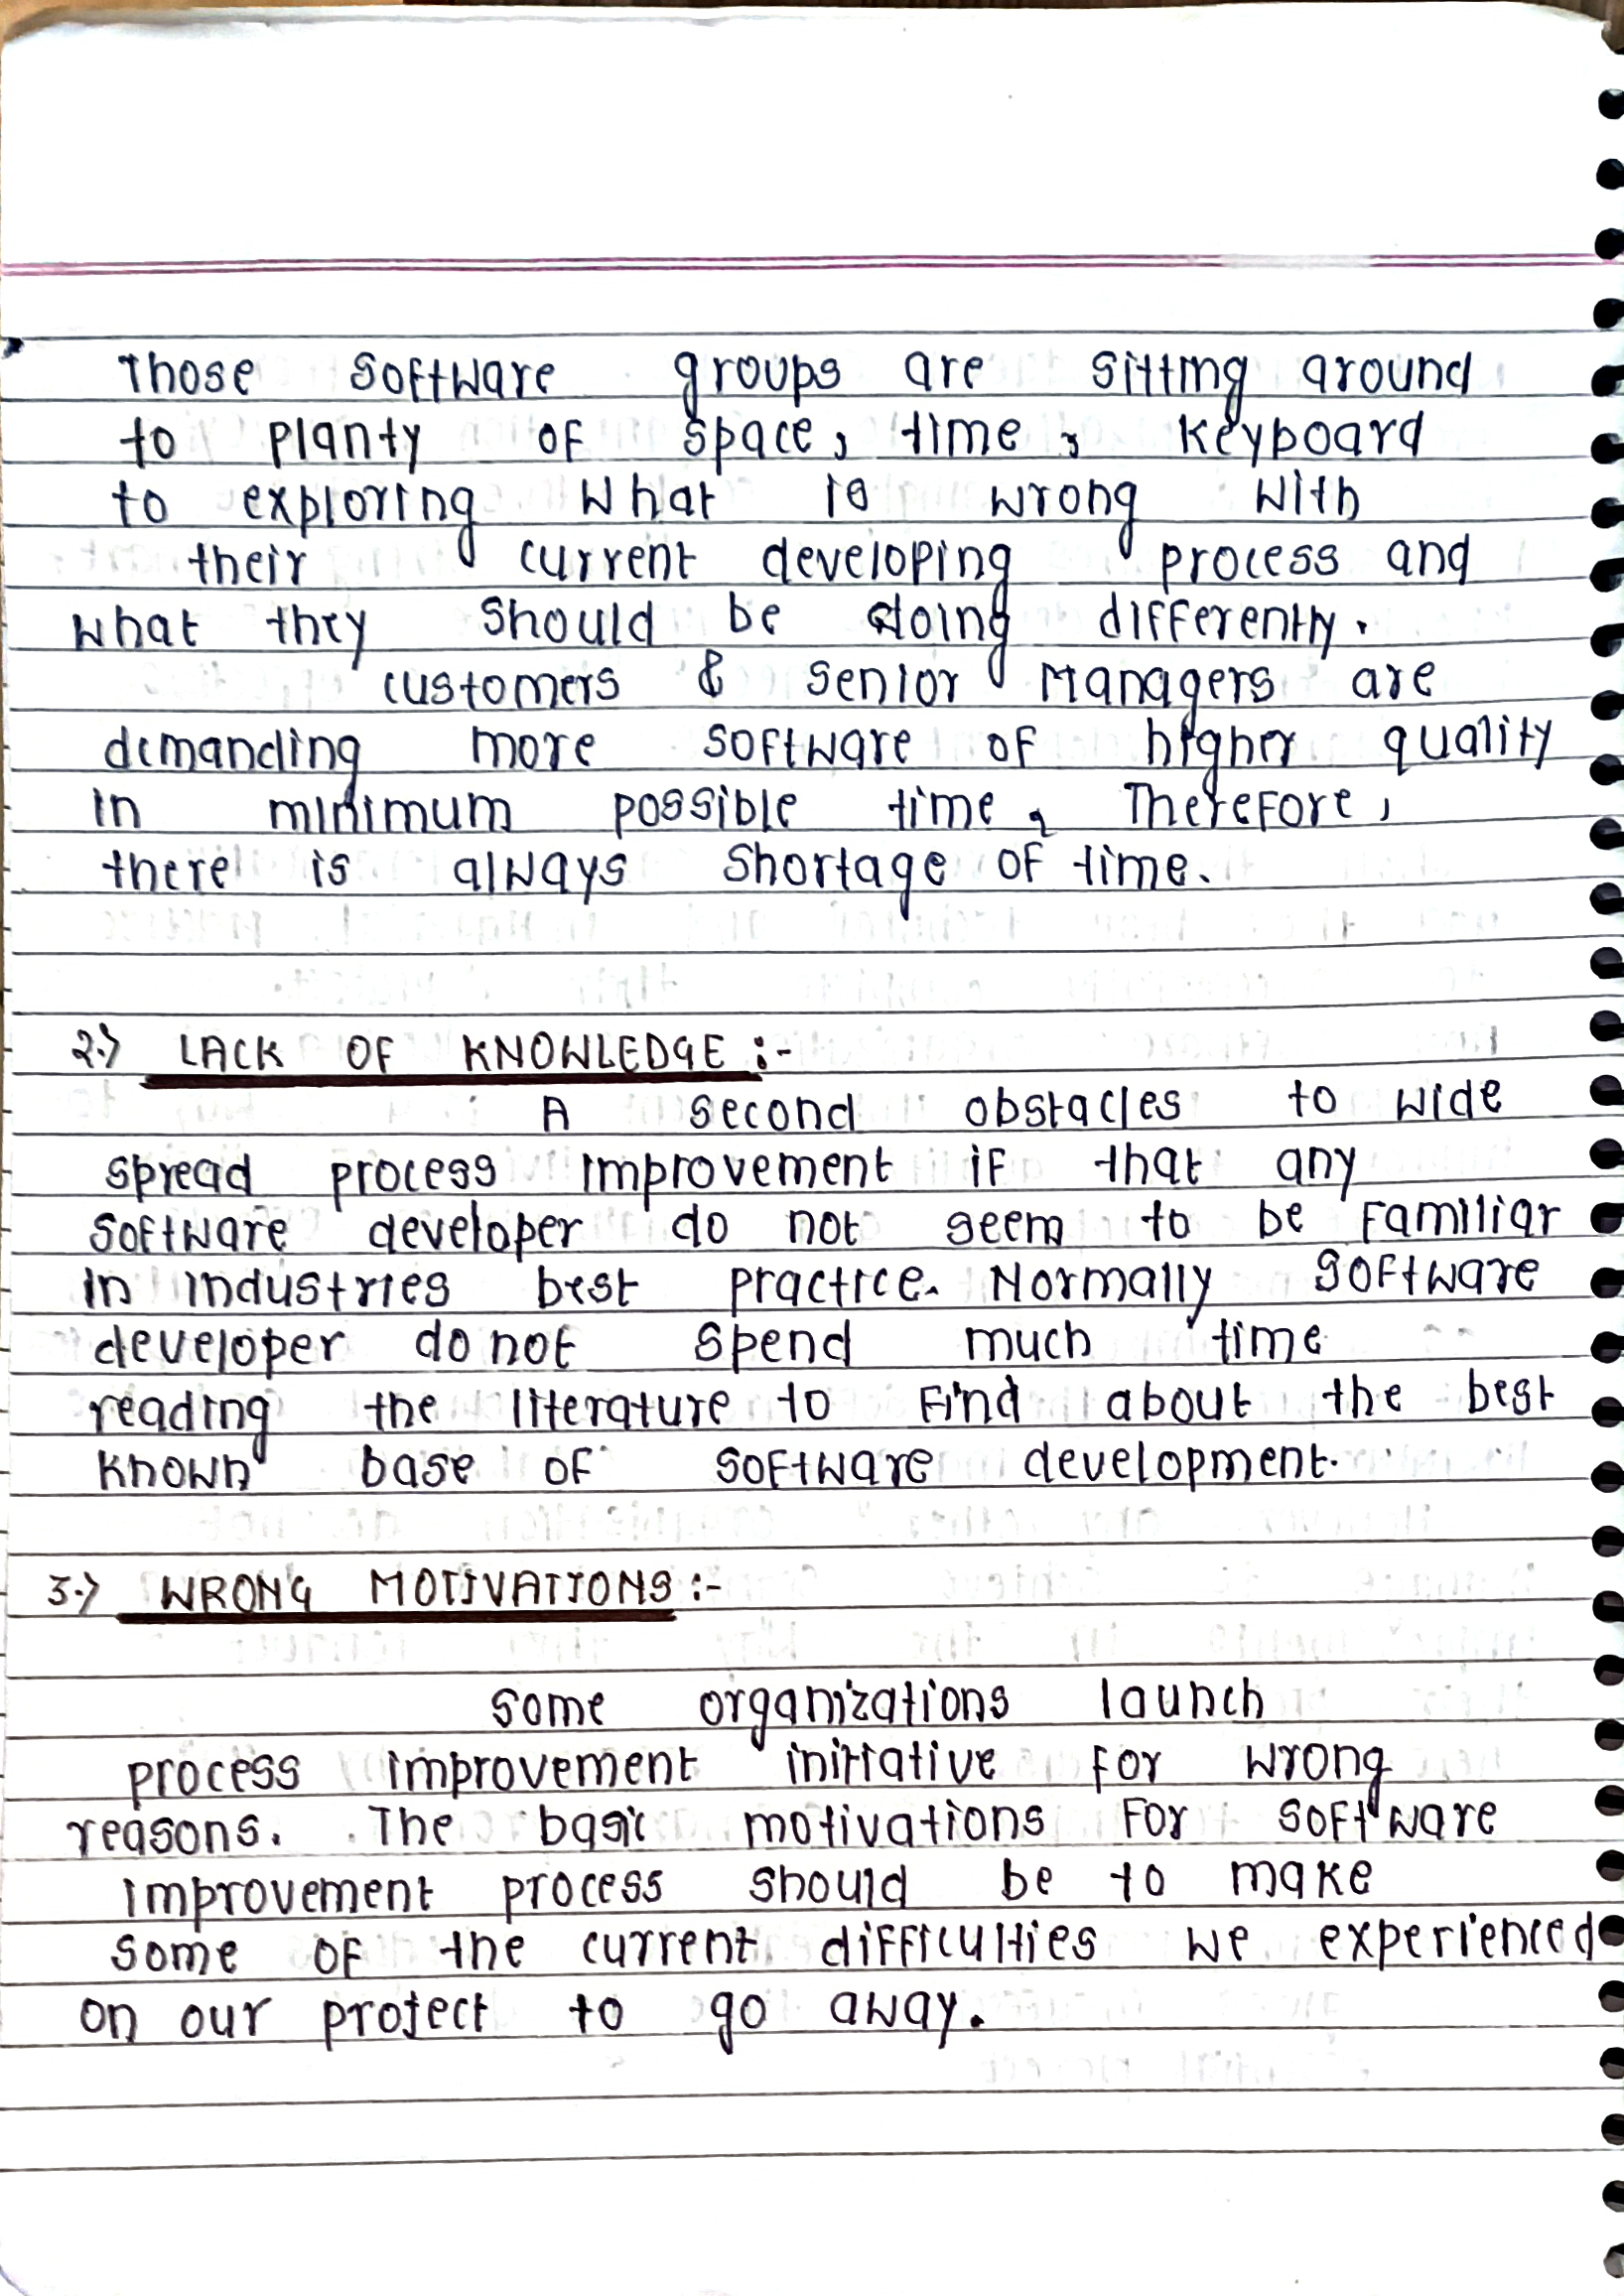 Those software groups are sitting around
to planty of space, time, keyboard
to exploring what is wrong with
their current developing process and
what they should be doing differently.
customers & senior Managers are
demanding more software of higher quality
in minimum possible time, Therefore,
there is always shortage of time.
2.) LACK OF KNOWLEDGE :-
A second obstacles to wide
spread process improvement if that any
software developer do not seem to be familiar
in industries best practice. Normally software
developer do not spend much time
reading the literature to find about the best
known base of software development.
3.) WRONG MOTIVATIONS :-
some organizations launch
process improvement initiative for wrong
reasons. The basic motivations for software
improvement process should be to make
some of the current difficulties we experienced
on our project to go away.